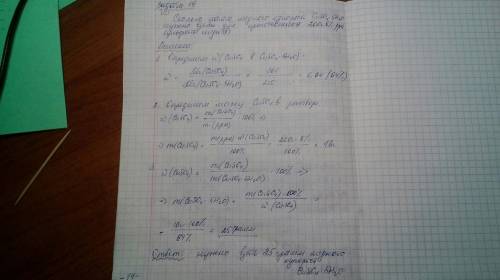 Задача 14
Сколько медного купороса CuSO₄·5H₂O
нужно взять для приготовления 200г 8%
Решение:
1. Определим ω (CuSO₄) в CuSO₄·5H₂O:
ω = Mr(CuSO₄) / Mr(CuSO₄·5H₂O) = 160 / 250 = 0,64 (64%)
2. Определим массу CuSO₄ в растворе
ω(CuSO₄) = m(CuSO₄) / m(р-ра) · 100% ⇒
⇒ m(CuSO₄) = m(р-ра)·ω(CuSO₄) / 100% = 200·8% / 100% = 16г
ω(CuSO₄) = m(CuSO₄) / m(CuSO₄·5H₂O) · 100% ⇒
⇒ m(CuSO₄·5H₂O) = m(CuSO₄)·100% / ω(CuSO₄) =
= 16·100% / 64% = 25 грамм
Ответ: нужно взять 25 грамм медного
купороса
CuSO₄·5H₂O
-14-